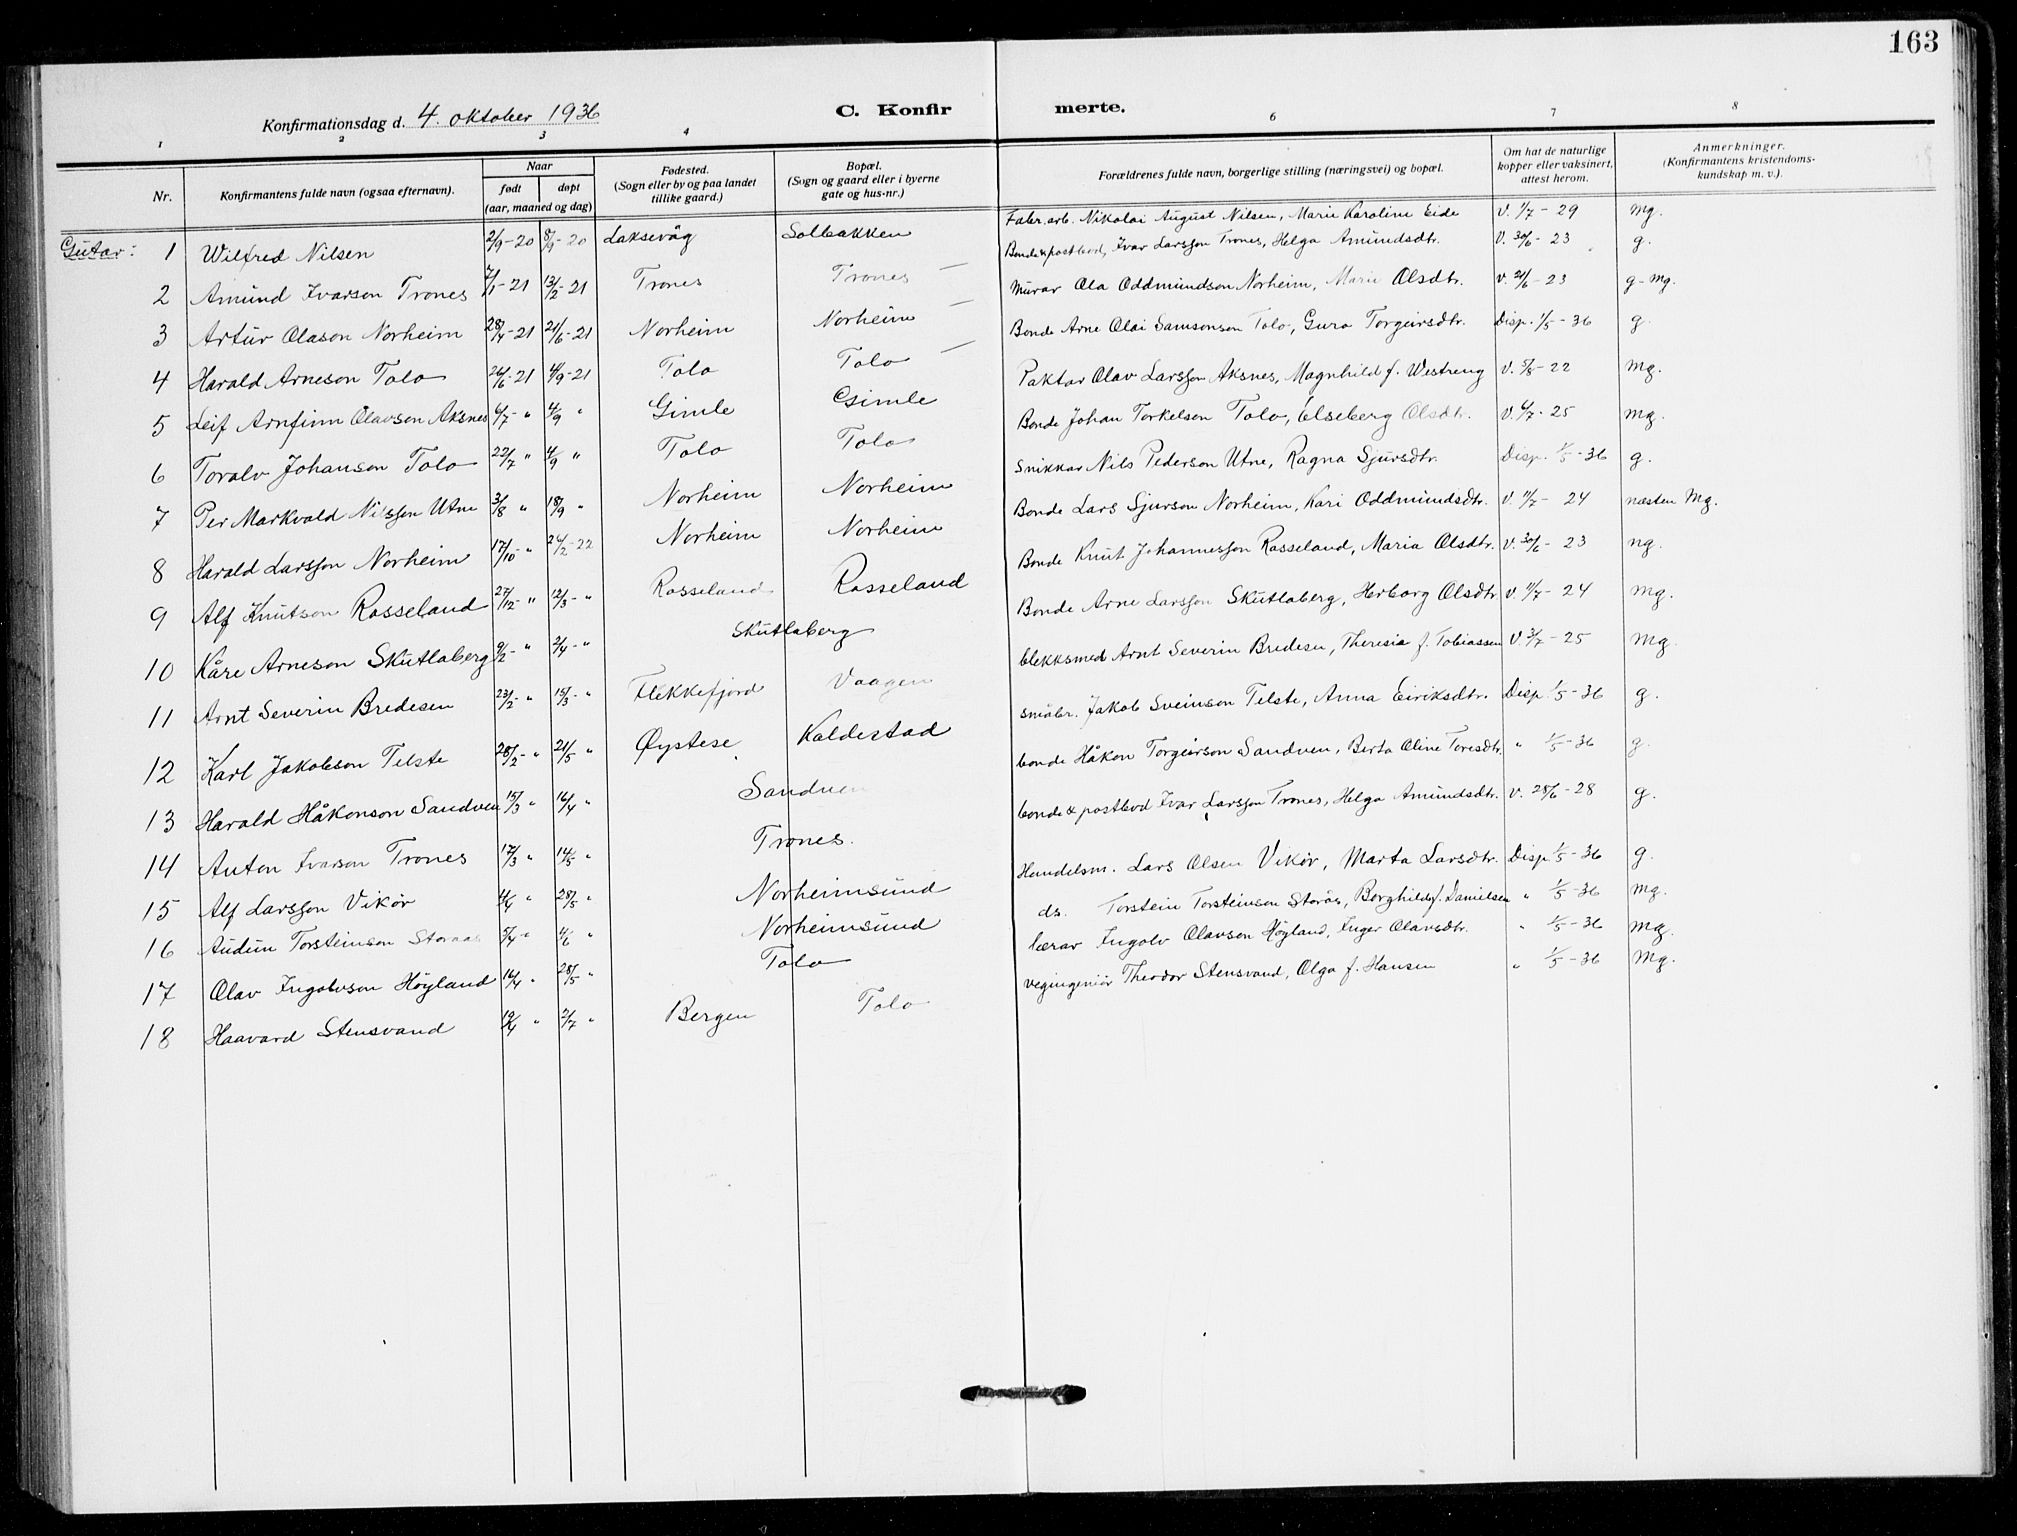 163
Konfirmationsdag d. 4. oktober 1936
C. Konfir merte.
1 2 3 4 6 7 8
Nr. Konfirmantens fulde navn (ogsaa efternavn). Naar født døpt (aar, maaned og dag) Fødested. (Sogn eller by og paa landet tillike gaard.) Bopæl. (Sogn og gaard eller i byerne gate og hus-nr.) Forældrenes fulde navn, borgerlige stilling (næringsvei) og bopæl. Om hat de naturlige kopper eller vaksinert, attest herom. Anmerkninger. (Konfirmantens kristendomskundskap m. v.).
Gutar: 1 Wilfred Nilsen 2/9-20 8/9-20 Laksevåg Solbakken Fabr. arb. Nikolai August Nilsen, Marie Karoline Eide V. 1/7-29 Mg.
2 Amund Ivarson Trones 7/1-21 13/2-21 Trones Trones Bonde & postbod, Ivar Larsson Trones, Helga Amundsdtr. V. 30/6-23 g.
3 Artur Olason Norheim 28/4-21 21/6-21 Norheim Norheim Murar Ola Oddmundson Norheim, Marie Olsdtr. V. 21/6-23 g-Mg.
4 Harald Arneson Tolo 26/6-21 4/9-21 Tolo Tolo Bonde Arne Olai Samsonson Tolo, Guro Torgeirsdtr. Disp. 1/5-36 g.
5 Leif Arnfinn Olavson Aksnes 6/7-" 4/9 " Gimle Gimle Paktar Olav Larsson Aksnes, Magnhild f. Westreng V. 5/8-22 Mg.
6 Toralv Johanson Tolo 22/7 " 4/9 " Tolo Tolo Bonde Johan Torkelson Tolo, Elseberg Olsdtr. V. 6/7-25 Mg.
7 Per Markvald Nilsson Utne 3/8 " 18/9 " Norheim Norheim Snikkar Nils Pederson Utne, Ragna Sjursdtr. Disp. 1/5-36 g.
8 Harald Larsson Norheim 17/10-" 24/2-22 Norheim Norheim Bonde Lars Sjurson Norheim, Kari Oddmundsdtr. V. 11/7-24 næsten Mg.
9 Alf Knutson Rosseland 27/12-" 12/3-" Rosseland Rosseland Bonde Knut Johannesson Rosseland, Maria Olsdtr. V. 30/6-23 ng.
10 Kåre Arneson Skutlaberg 9/2-" 2/4-" Skutlaberg Bonde Arne Larsson Skutlaberg, Herborg Olsdtr. V. 11/7-24 Mg.
11 Arnt Severin Bredesen 23/2-" 15/3-" Flekkefjord Vaagen blekksmed Arnt Severin Bredesen, Theresia f. Tobiassen V. 3/7-25 Mg.
12 Karl Jakobson Telste 28/2-" 21/5 " Øystese Kaldestad småbr. Jakob Sveinson Telste, Anna Eiriksdtr. Disp 1/5-36 g.
13 Harald Håkonson Sandven 15/3 " 16/4 " Sandven bonde Håkon Torgeirson Sandven, Berta Oline Toresdtr. " 1/5-36 g.
14 Anton Ivarson Trones 17/3 " 14/5 " Trones. bonde & postbod Ivar Larsson Trones, Helga Amundsdtr. V. 28/6-28 g.
15 Alf Larsson Vikør 4/4 " 28/5 " Norheimsund Handelsm. Lars Olsen Vikør, Marta Larsdtr. Disp. 1/5-36 g.
16 Audun Torsteinson Storaas 5/4-" 4/6 " Norheimsund ds. Torstein Torsteinson Storås, Borghild f. Danielsen " 1/5-36 Mg.
17 Olav Ingolvson Høyland 16/4 " 28/5 " Tolo lærar Ingolv Olavson Høyland, Inger Olavsdtr. " 1/5-36 Mg.
18 Haavard Stensvand 19/4 " 2/7 " Bergen Tolo vegingeniør Theodor Stensvand, Olga f. Hansen " 1/5-36 Mg.